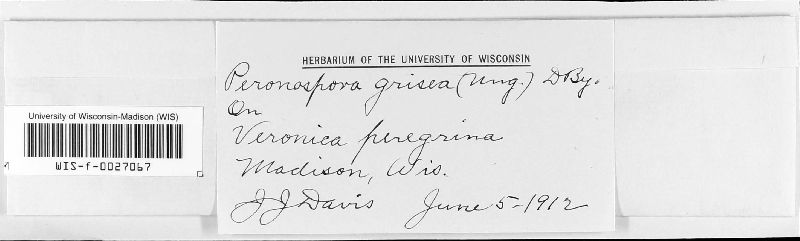 HERBARIUM OF THE UNIVERSITY OF WISCONSIN
Peronospora grisea (Ung.) DBy.
On
Veronica peregrina
Madison, Wis.
J J Davis June 5-1912
University of Wisconsin-Madison (WIS)
WIS-f-0027067